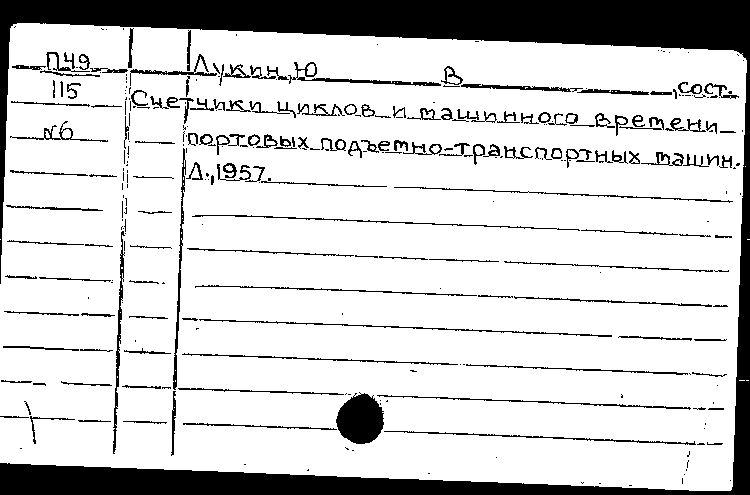 П49 Лукин, Ю В , сост.
115 Счетчики циклов и машинного времени
№6 портовых подъемно-транспортных машин.
Л., 1957.